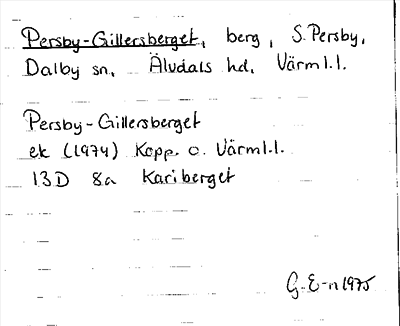 Persby-Gillersberget, berg, S. Persby,
Dalby sn, Älvdals hd, Värml.l.
Persby-Gillersberget
ek (1974) Kopp. o. Värml.l.
13D 8a Kariberget
G. E-n 1975